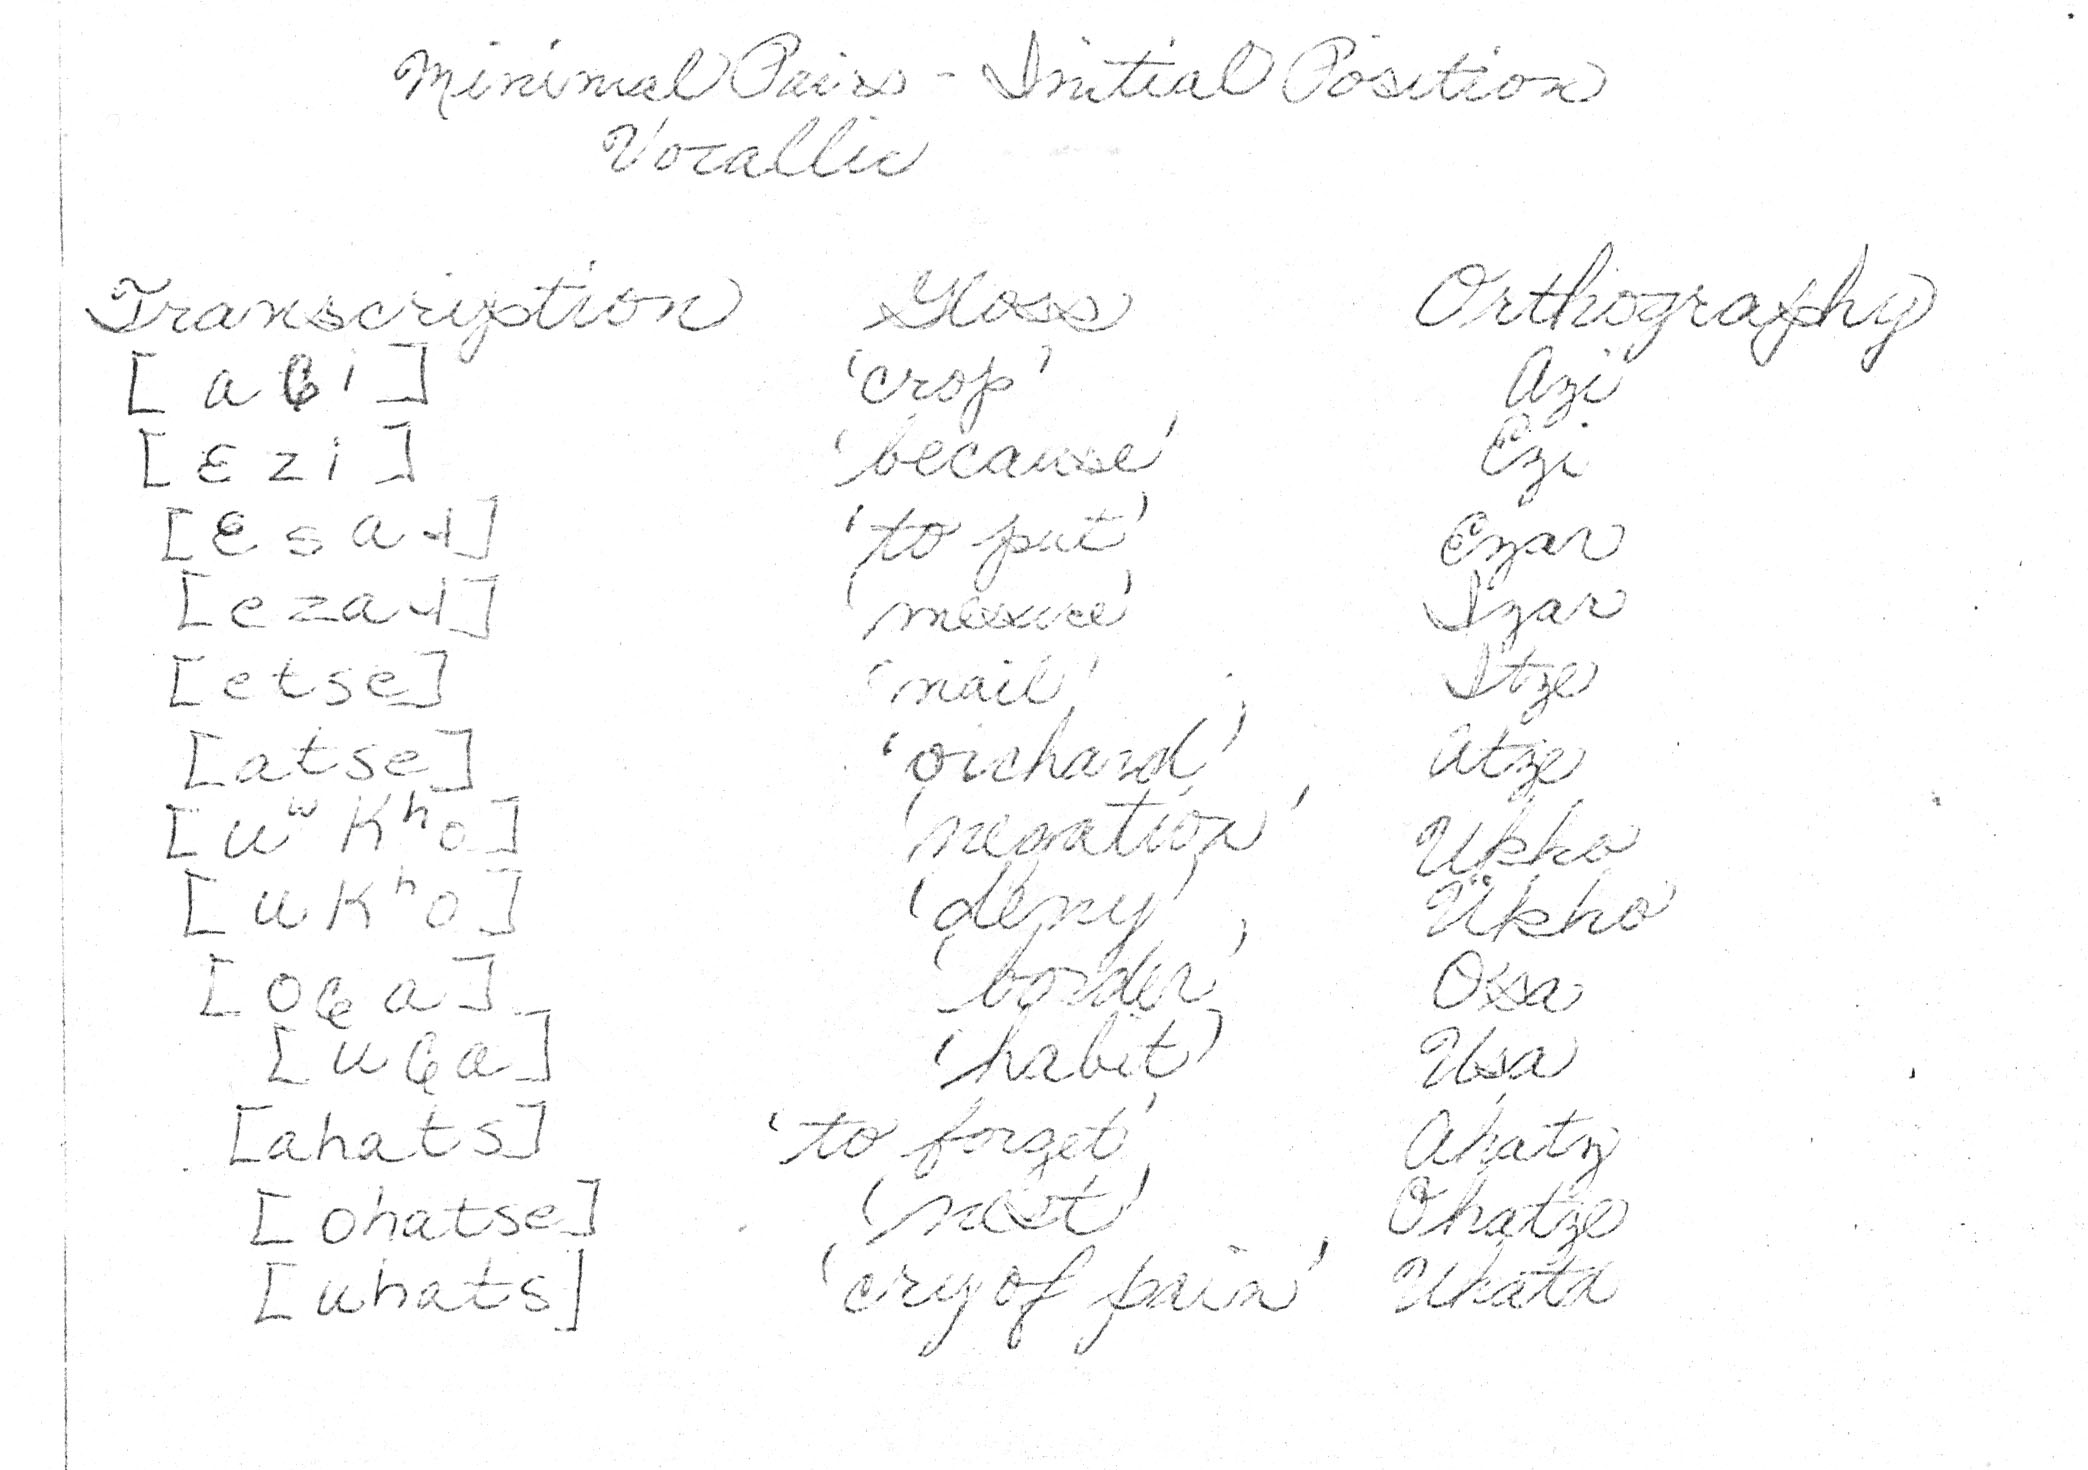 Minimal Pairs - Initial Position
Vocallic
Transcription Gloss Orthography
[aɕi] 'crop' Azi
[ɛzi] 'because' Ezi
[ɛsaɹ] 'to put' Ezar
[ezaɹ] 'mesure' Izar
[etse] 'nail' Itze
[atse] 'orchard' Atze
[uʷkʰo] 'negation' Ukho
[ukʰo] 'deny' Ükho
[oɕa] 'border' Osa
[uɕa] 'habit' Usa
[ahats] 'to forget' Ahatz
[ohatse] 'nest' Ohatze
[uhats] 'cry of pain'